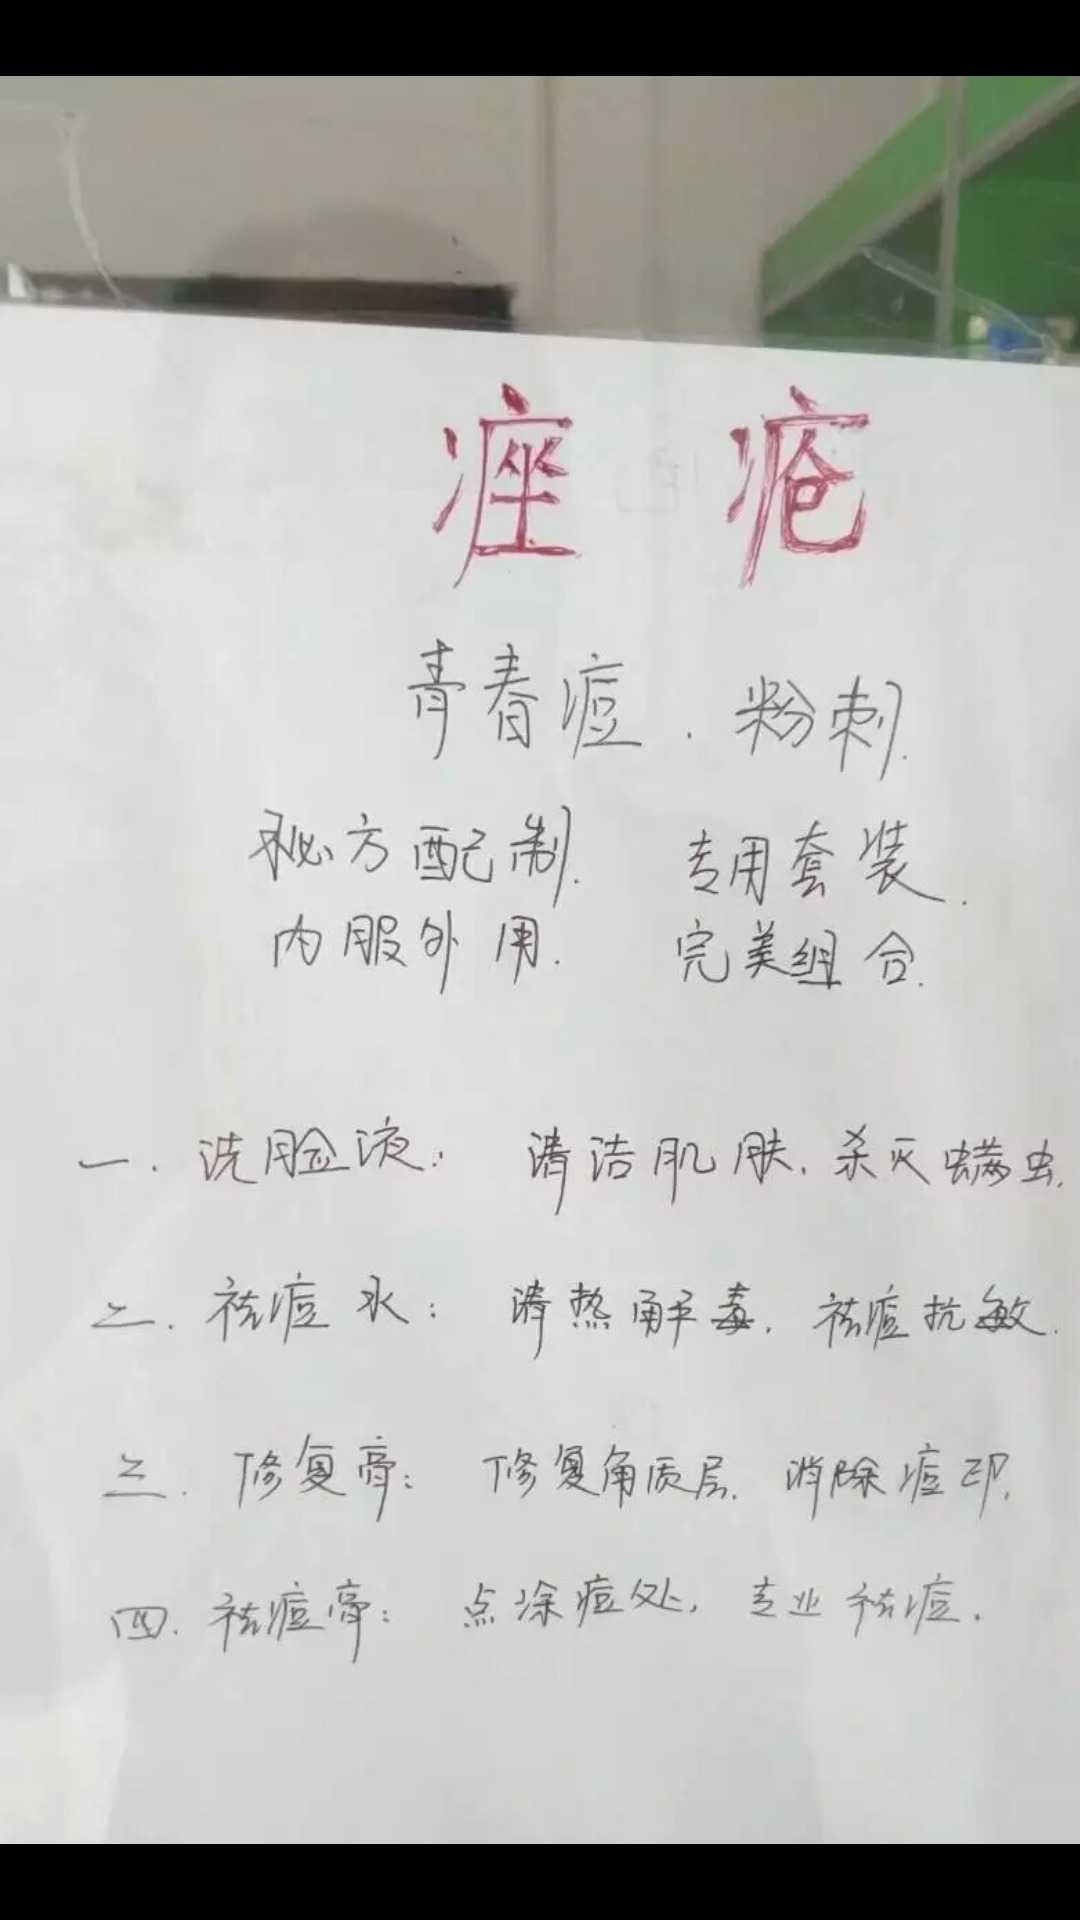 痤疮
青春痘．粉刺．
秘方配制．　专用套装．
内服外用．　完美组合．
一．洗脸液：　清洁肌肤．杀灭螨虫．
二．祛痘水：　清热解毒．祛痘抗敏．
三．修复膏：　修复角质层．消除痘印．
四．祛痘膏：　点涂痘处，专业祛痘．